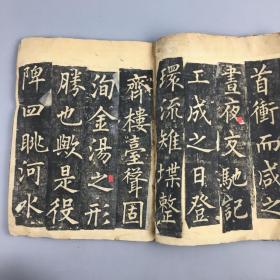 首衝而咸之
晝夜交馳訖
工成之日登
環流雉堞整
齊樓臺聳固
洵金湯之形
勝也歟是役
陴四眺河水